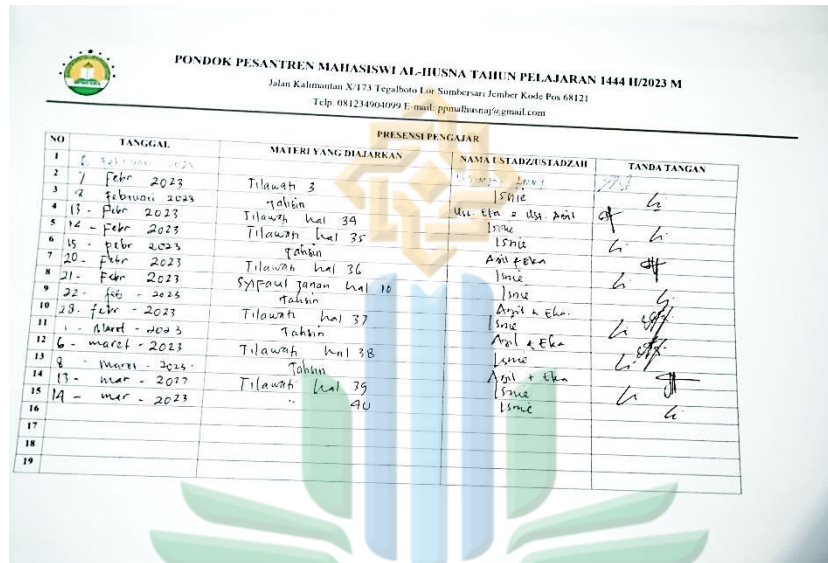 PONDOK PESANTREN MAHASISWI AL-HUSNA TAHUN PELAJARAN 1444 H/2023 M
Jalan Kalimantan X/173 Tegalboto Lor Sumbersari Jember Kode Pos 68121
Telp. 081234904099 E-mail: ppmalhusnaj@gmail.com
PRESENSI PENGAJAR
NO TANGGAL MATERI YANG DIAJARKAN NAMA USTADZ/USTADZAH TANDA TANGAN
1 2023
2 7 Febr 2023 Tilawati 3 Isnie
3 8 Februari 2023 Tahsin Ust. Eka & Ust. Azil
4 13 - Febr 2023 Tilawah hal 34 Isnie
5 14 - Febr 2023 Tilawah hal 35 Isnie
6 15 - Febr 2023 Tahsin Azil & Eka
7 20 - Febr 2023 Tilawah hal 36 Isnie
8 21 - Febr 2023 Syifaul Janan hal 10 Isnie
9 22 - feb - 2023 Tahsin Azil & Eka
10 28 - febr - 2023 Tilawah hal 37 Isnie
11 1 - Maret - 2023 Tahsin Azil & Eka
12 6 - maret - 2023 Tilawah hal 38 Isnie
13 8 - Maret - 2023 Tahsin Azil + Eka
14 13 - mar - 2023 Tilawah hal 39 Isnie
15 14 - mar - 2023 " 40 Isnie
16
17
18
19